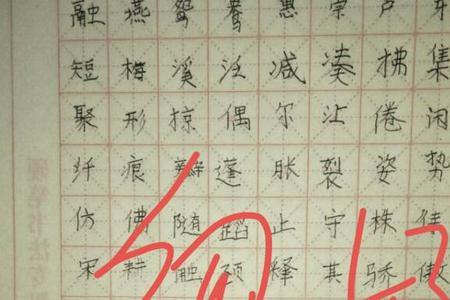 融燕鸳鸯惠宗芦牙
短梅溪泛减凑拂集
聚形掠偶尔沾倦闲
纤痕瓣蓬胀裂姿势
仿佛随蹈止守株
宋耕触颈释其骄傲